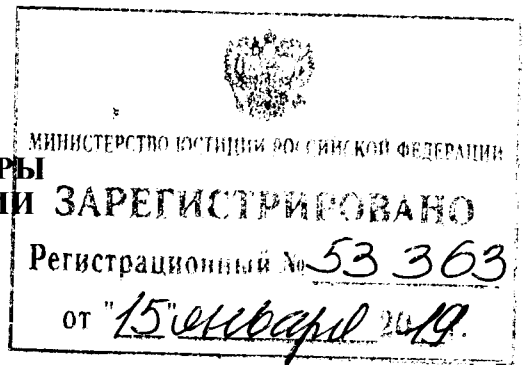 МИНИСТЕРСТВО ЮСТИЦИИ РОССИЙСКОЙ ФЕДЕРАЦИИ
РЫ
ИИ ЗАРЕГИСТРИРОВАНО
Регистрационный № 53 363
от "15" января 2019.